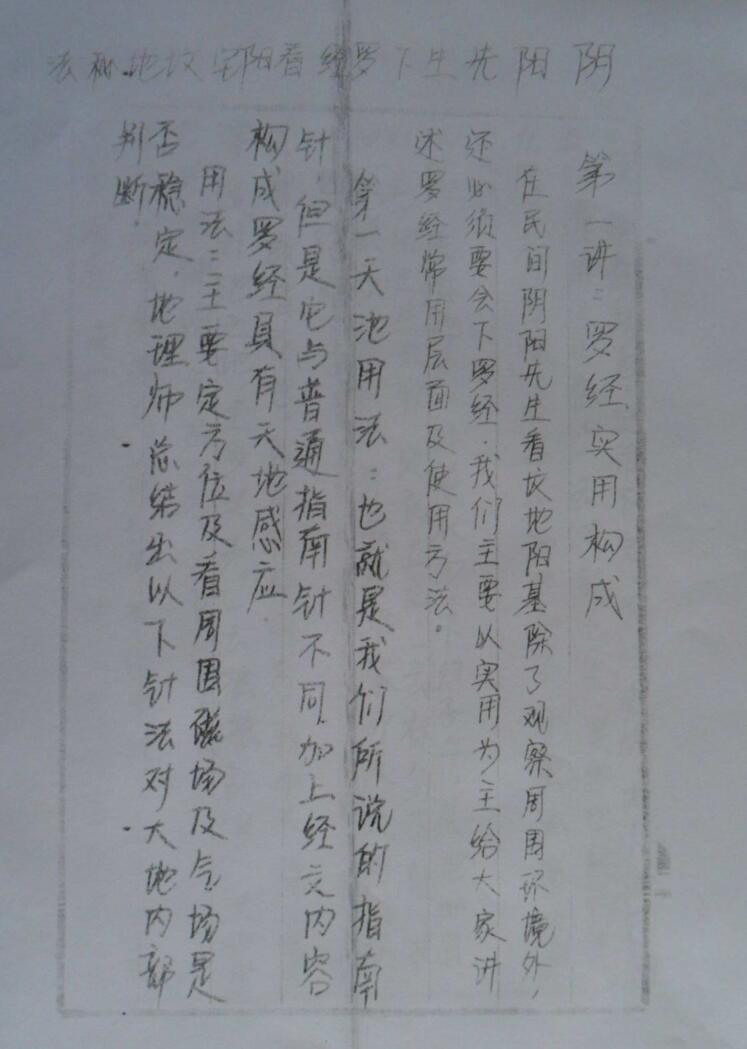 阴阳先生下罗经看阳宅坟地秘法
第一讲：罗经实用构成
在民间阴阳先生看坟地阳基除了观察周围环境外，
还必须要会下罗经．我们主要以实用为主给大家讲
述罗经常用层面及使用方法。
第一天池用法：也就是我们所说的指南
针．但是它与普通指南针不同．加上经文内容
构成罗经具有天地感应．
用法：主要定方位及看周围磁场及气场是
否稳定．地理师总结出以下针法对大地内部
判断．